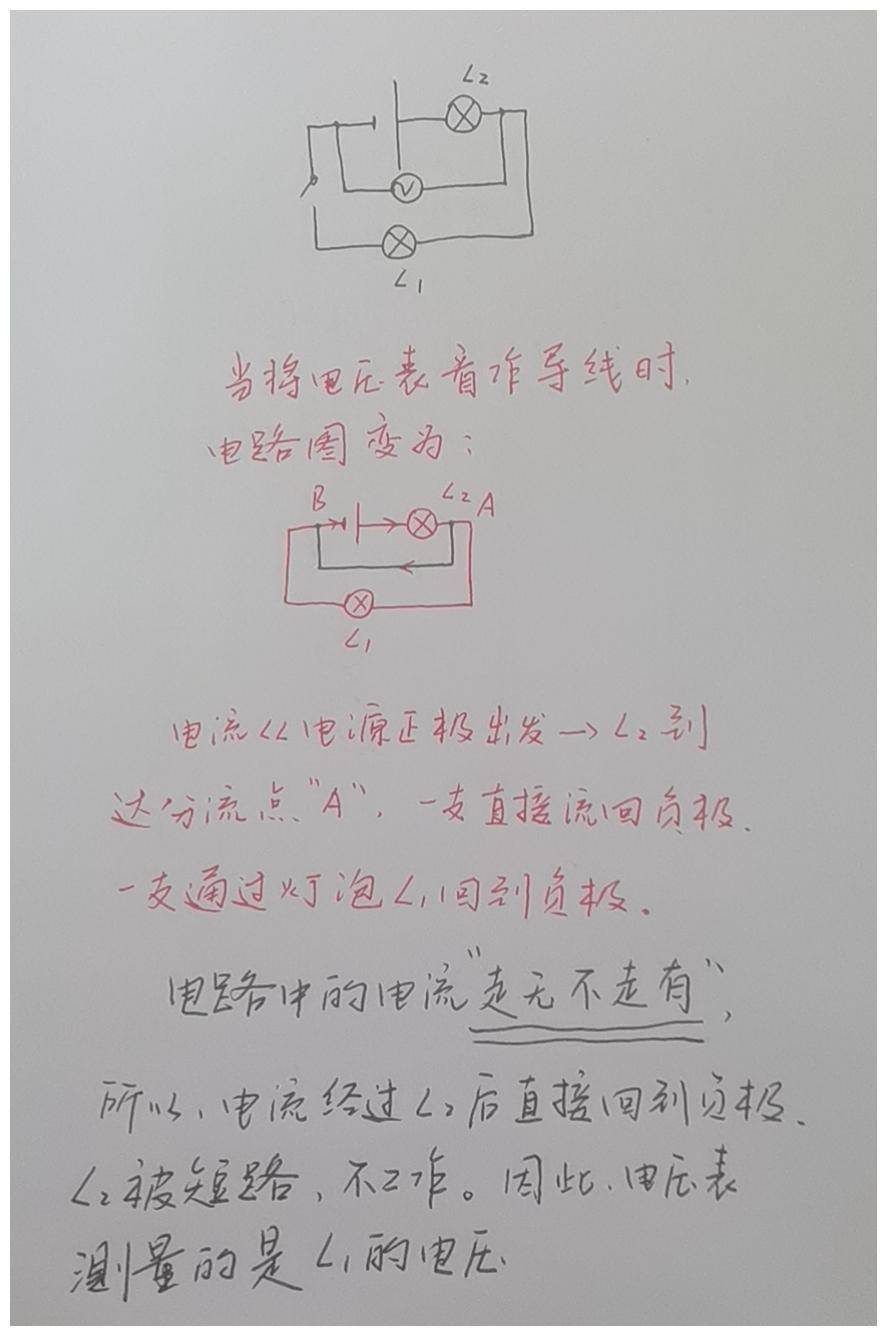 L2
V
L1
当将电压表看作导线时,
电路图变为:
B L2 A
L1
电流从电源正极出发→L2到
达分流点“A”,一支直接流回负极.
一支通过灯泡L1回到负极。
电路中的电流“走无不走有”,
所以,电流经过L2后直接回到负极.
L2被短路,不工作。因此,电压表
测量的是L1的电压